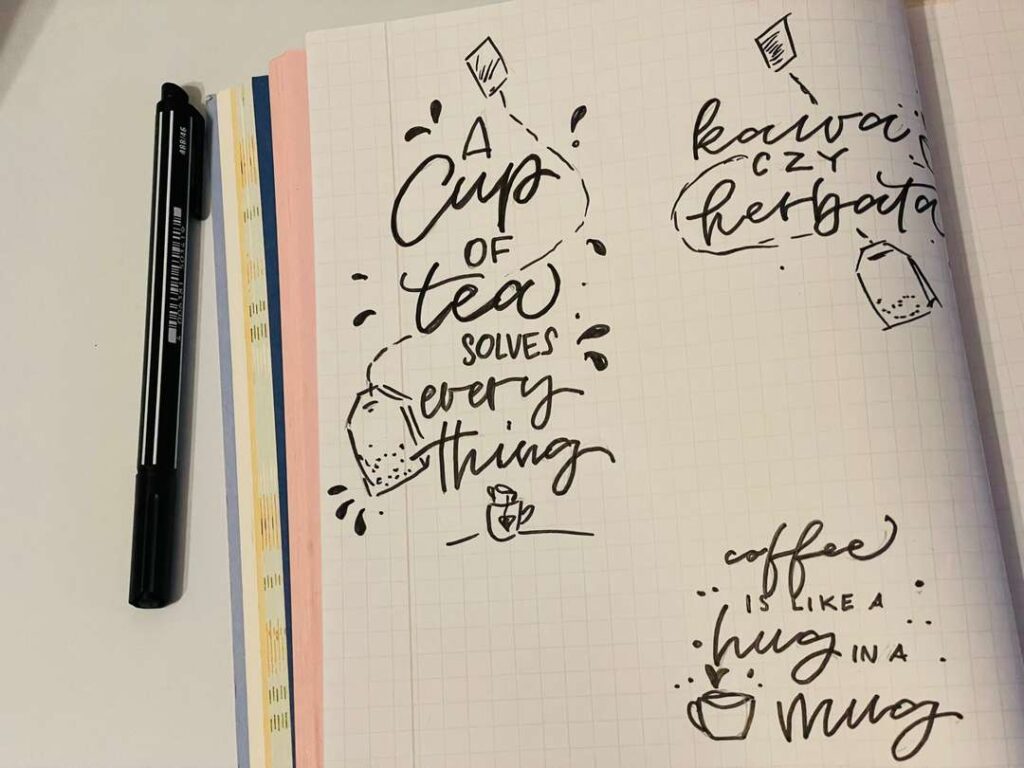 A
Cup
OF
tea
SOLVES
every
thing
kawa
CZY
herbata
coffee
IS LIKE A
hug IN A
mug